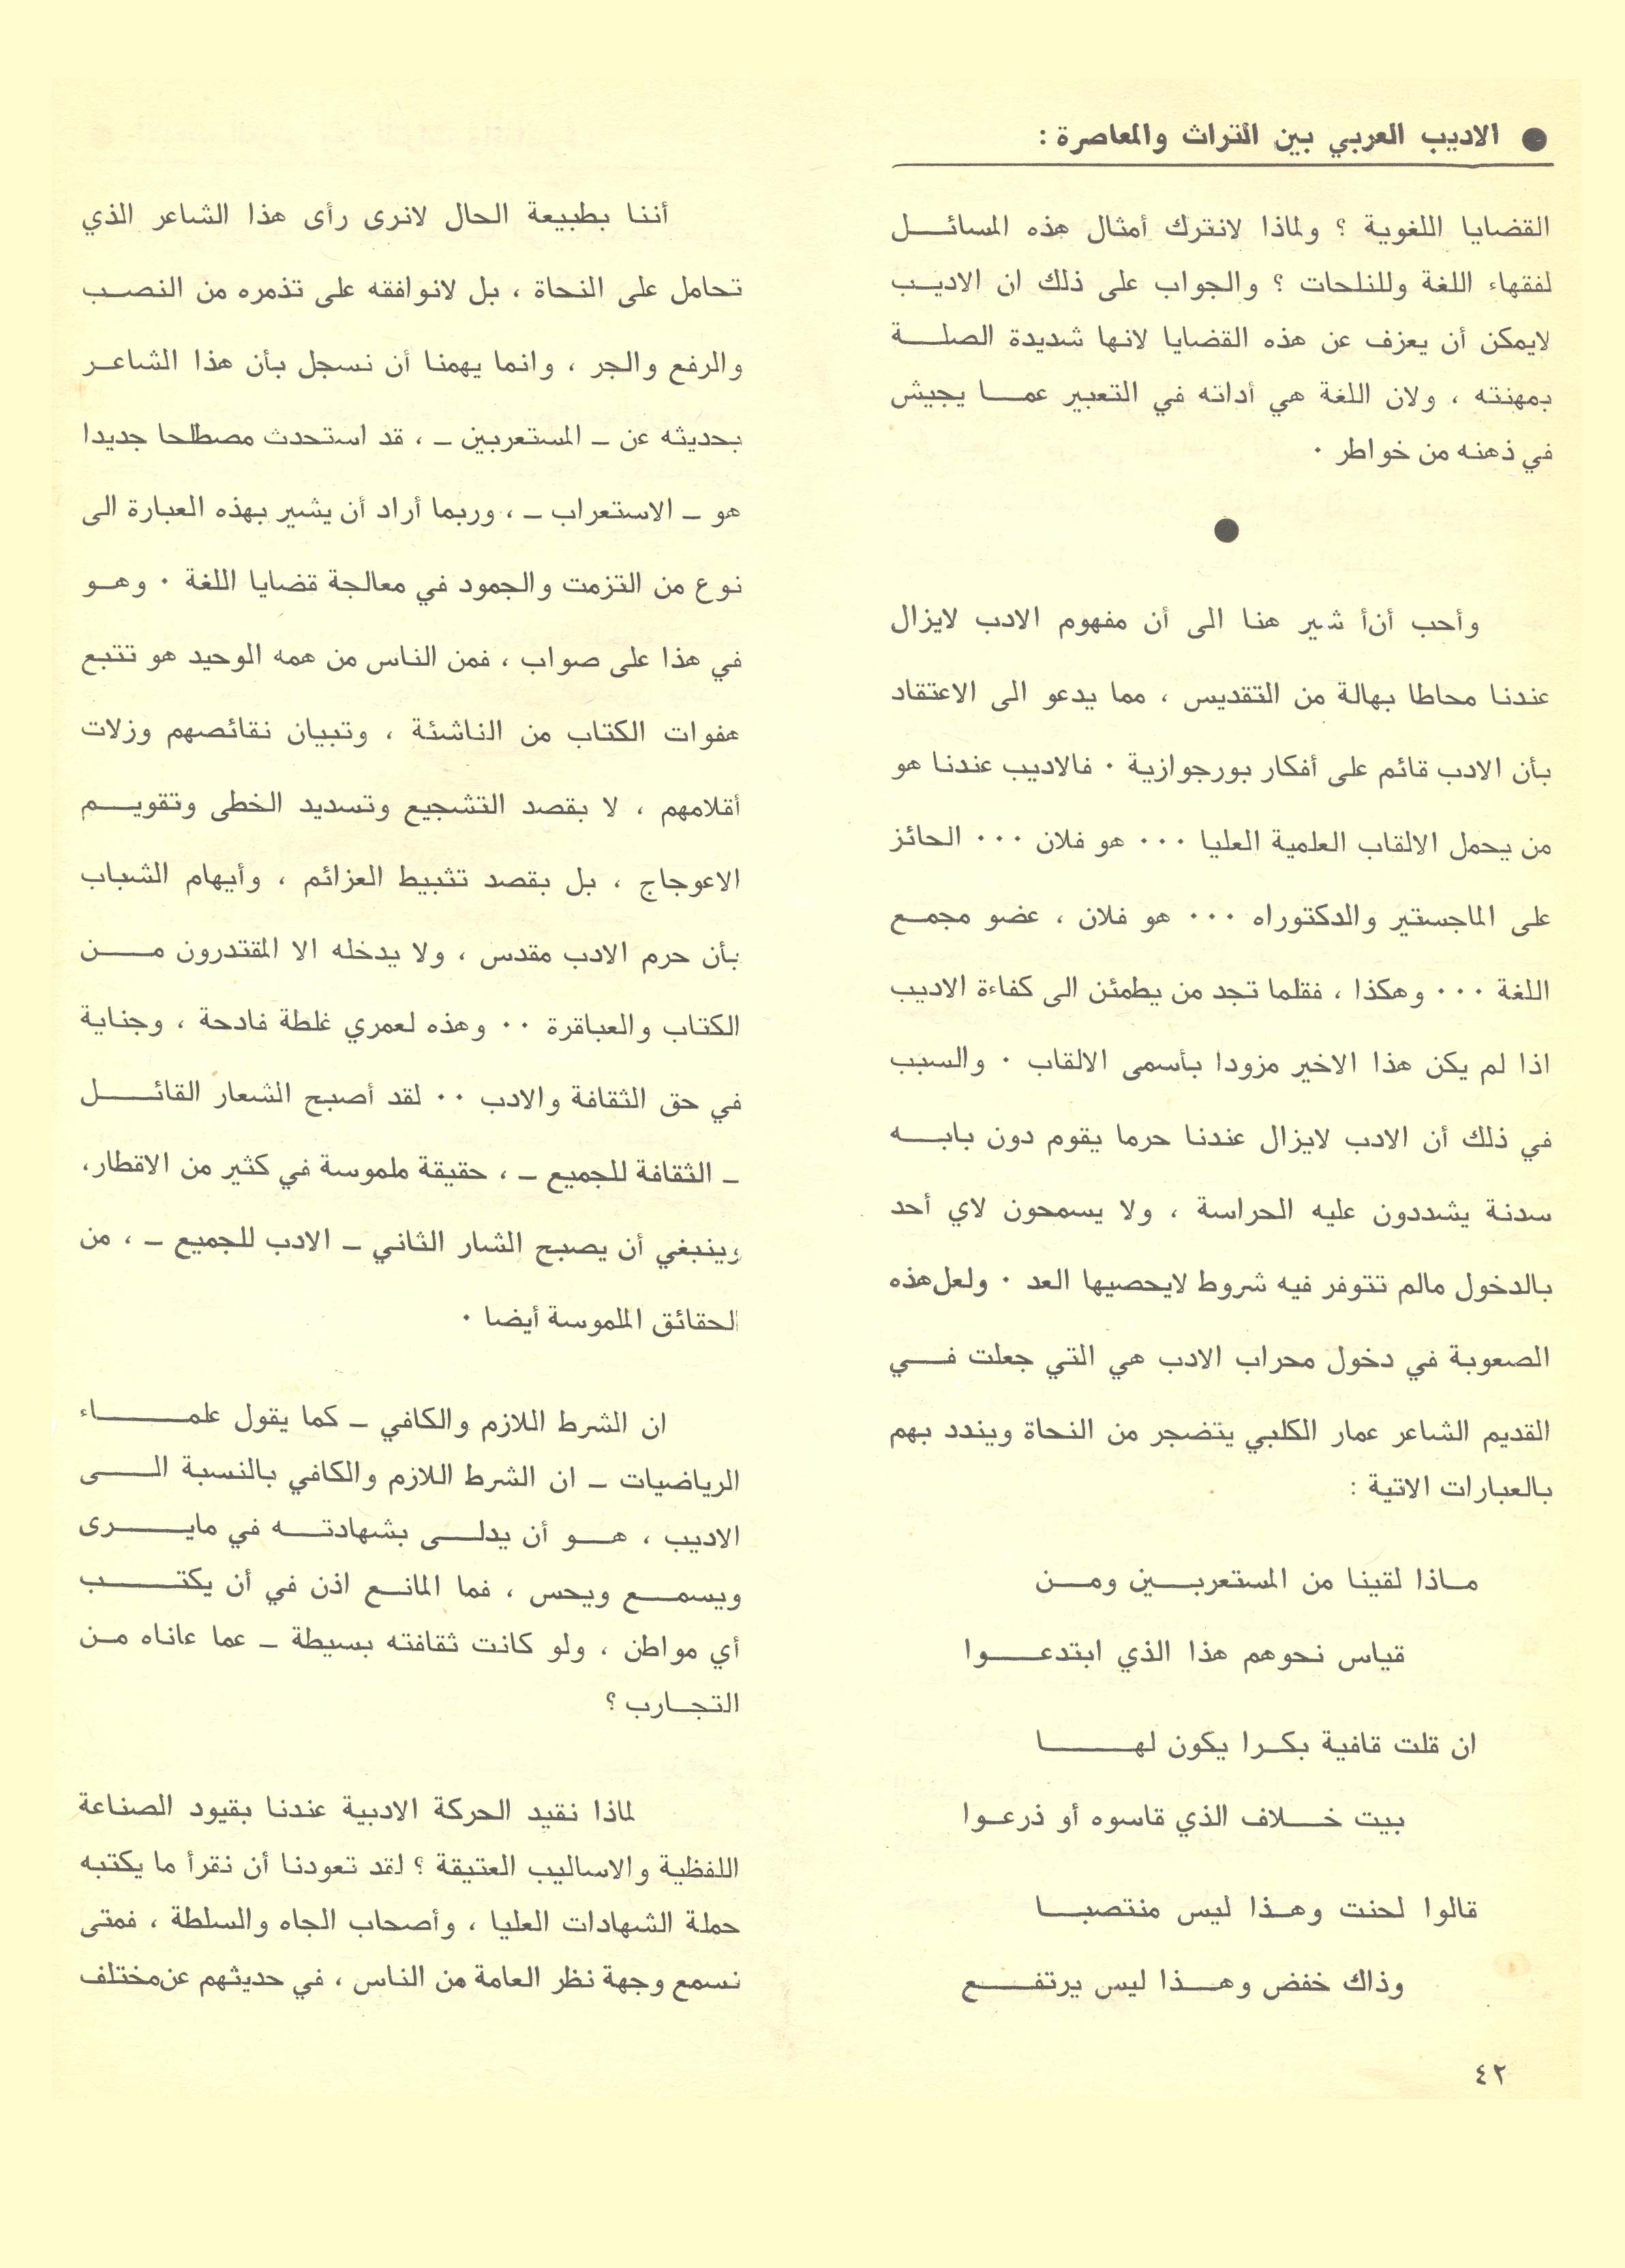 ● الاديب العربي بين التراث والمعاصرة :
القضايا اللغوية ؟ ولماذا لانترك أمثال هذه المسائل
لفقهاء اللغة وللنلحات ؟ والجواب على ذلك ان الاديب
لايمكن أن يعزف عن هذه القضايا لانها شديدة الصلة
بمهنته ، ولان اللغة هي أداته في التعبير عما يجيش
في ذهنه من خواطر ٠
●
وأحب أنأ شير هنا الى أن مفهوم الادب لايزال
عندنا محاطا بهالة من التقديس ، مما يدعو الى الاعتقاد
بأن الادب قائم على أفكار بورجوازية ٠ فالاديب عندنا هو
من يحمل الالقاب العلمية العليا ٠٠٠ هو فلان ٠٠٠ الحائز
على الماجستير والدكتوراه ٠٠٠ هو فلان ، عضو مجمع
اللغة ٠٠٠ وهكذا ، فقلما تجد من يطمئن الى كفاءة الاديب
اذا لم يكن هذا الاخير مزودا بأسمى الالقاب ٠ والسبب
في ذلك أن الادب لايزال عندنا حرما يقوم دون بابه
سدنة يشددون عليه الحراسة ، ولا يسمحون لاي أحد
بالدخول مالم تتوفر فيه شروط لايحصيها العد ٠ ولعل هذه
الصعوبة في دخول محراب الادب هي التي جعلت في
القديم الشاعر عمار الكلبي يتضجر من النحاة ويندد بهم
بالعبارات الاتية :
ماذا لقينا من المستعربين ومن
قياس نحوهم هذا الذي ابتدعوا
ان قلت قافية بكرا يكون لها
بيت خلاف الذي قاسوه أو ذرعوا
قالوا لحنت وهذا ليس منتصبا
وذاك خفض وهذا ليس يرتفع
أننا بطبيعة الحال لانرى رأى هذا الشاعر الذي
تحامل على النحاة ، بل لانوافقه على تذمره من النصب
والرفع والجر ، وانما يهمنا أن نسجل بأن هذا الشاعر
بحديثه عن ـ المستعربين ـ ، قد استحدث مصطلحا جديدا
هو ـ الاستعراب ـ ، وربما أراد أن يشير بهذه العبارة الى
نوع من التزمت والجمود في معالجة قضايا اللغة ٠ وهو
في هذا على صواب ، فمن الناس من همه الوحيد هو تتبع
هفوات الكتاب من الناشئة ، وتبيان نقائصهم وزلات
أقلامهم ، لا بقصد التشجيع وتسديد الخطى وتقويم
الاعوجاج ، بل بقصد تثبيط العزائم ، وأيهام الشباب
بأن حرم الادب مقدس ، ولا يدخله الا المقتدرون من
الكتاب والعباقرة ٠٠ وهذه لعمري غلطة فادحة ، وجناية
في حق الثقافة والادب ٠٠ لقد أصبح الشعار القائل
ـ الثقافة للجميع ـ ، حقيقة ملموسة في كثير من الاقطار،
وينبغي أن يصبح الشار الثاني ـ الادب للجميع ـ ، من
الحقائق الملموسة أيضا ٠
ان الشرط اللازم والكافي ـ كما يقول علماء
الرياضيات ـ ان الشرط اللازم والكافي بالنسبة الى
الاديب ، هو أن يدلى بشهادته في مايرى
ويسمع ويحس ، فما المانع اذن في أن يكتب
أي مواطن ، ولو كانت ثقافته بسيطة ـ عما عاناه من
التجارب ؟
لماذا نقيد الحركة الادبية عندنا بقيود الصناعة
اللفظية والاساليب العتيقة ؟ لقد تعودنا أن نقرأ ما يكتبه
حملة الشهادات العليا ، وأصحاب الجاه والسلطة ، فمتى
نسمع وجهة نظر العامة من الناس ، في حديثهم عن مختلف
٤٢